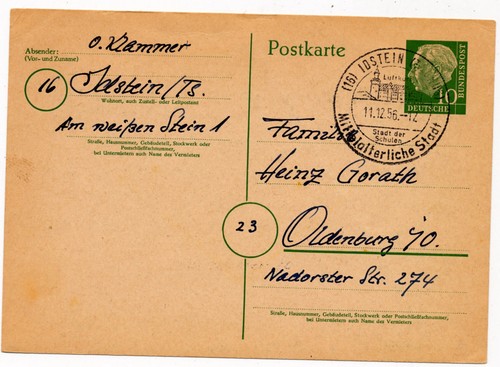 Absender:
(Vor- und Zuname)
O. Klammer
16
Idstein/Ts.
Wohnort, auch Zustell- oder Leitpostamt
Am weißen Stein 1
Straße, Hausnummer, Gebäudeteil, Stockwerk oder
Postschließfachnummer,
bei Untermietern auch Name des Vermieters
Postkarte
(16) IDSTEIN
Luftku
11.12.56.-12
Stadt der
Schulen
Mittelalterliche Stadt
10
DEUTSCHE
BUNDESPOST
Familie
Heinz Gorath
23
Oldenburg i/O.
Nadorster Str. 274
Straße, Hausnummer, Gebäudeteil, Stockwerk oder Postschließfachnummer,
bei Untermietern auch Name des Vermieters